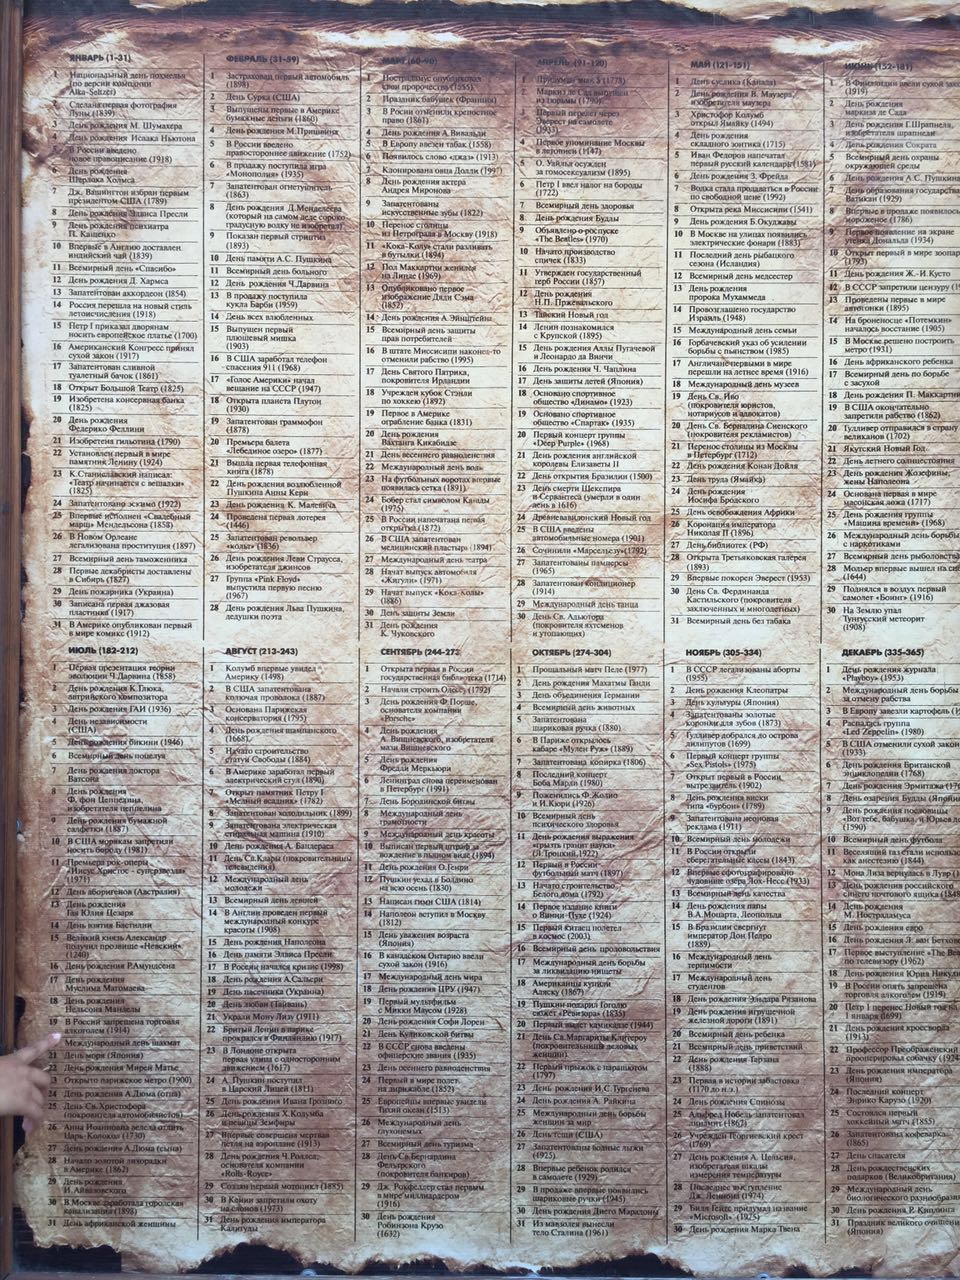 ЯНВАРЬ (1-31)
1 Национальный день похмелья
(по версии компании
Alka-Seltzer)
2 Сделана первая фотография
Луны (1839)
3 День рождения М. Шумахера
День рождения Исаака Ньютона
В России введено
новое правописание (1918)
День рождения
Шерлока Холмса
7 Дж. Вашингтон избран первым
президентом США (1789)
8 День рождения Элвиса Пресли
9 День рождения психиатра
П. Кащенко
10 Впервые в Англию доставлен
индийский чай (1839)
11 Всемирный день «Спасибо»
12 День рождения Д. Хармса
13 Запатентован аккордеон (1854)
14 Россия перешла на новый стиль
летоисчисления (1918)
15 Петр I приказал дворянам
носить европейское платье (1700)
16 Американский Конгресс принял
сухой закон (1917)
17 Запатентован сливной
туалетный бачок (1861)
18 Открыт Большой Театр (1825)
19 Изобретена консервная банка
(1825)
20 День рождения
Федерико Феллини
21 Изобретена гильотина (1790)
22 Установлен первый в мире
памятник Ленину (1924)
23 К.Станиславский написал
«Театр начинается с вешалки»
(1825)
24 Запатентовано эскимо (1922)
25 Впервые исполнен «Свадебный
марш» Мендельсона (1858)
26 В Новом Орлеане
легализована проституция (1897)
27 Всемирный день таможенника
28 Первые декабристы доставлены
в Сибирь (1827)
29 День пожарника (Украина)
30 Записана первая джазовая
пластинка (1917)
31 В Америке опубликован первый
в мире комикс (1912)
ФЕВРАЛЬ (31-59)
1 Застрахован первый автомобиль
(1898)
2 День Сурка (США)
3 Выпущены первые в Америке
бумажные деньги (1860)
4 День рождения М.Пришвина
5 В России введено
правостороннее движение (1752)
6 В продажу поступила игра
«Монополия» (1935)
7 Запатентован огнетушитель
(1863)
8 День рождения Д.Менделеева
(который на самом деле сороко-
градусную водку не изобретал)
9 Показан первый стриптиз
(1893)
10 День памяти А.С. Пушкина
11 Всемирный день больного
12 День рождения Ч.Дарвина
13 В продажу поступила
кукла Барби (1959)
14 День всех влюбленных
15 Выпущен первый
плюшевый мишка
(1903)
16 В США заработал телефон
спасения 911 (1968)
17 «Голос Америки» начал
вещание на СССР (1947)
18 Открыта планета Плутон
(1930)
19 Запатентован граммофон
(1878)
20 Премьера балета
«Лебединое озеро» (1877)
21 Вышла первая телефонная
книга (1878)
22 День рождения возлюбленной
Пушкина Анны Керн
23 День рождения К. Малевича
24 Проведена первая лотерея
(1446)
25 Запатентован револьвер
«кольт» (1836)
26 День рождения Леви Страусса,
изобретателя джинсов
27 Группа «Pink Floyd»
выпустила первую песню
(1967)
28 День рождения Льва Пушкина,
дедушки поэта
МАРТ (60-90)
1 Нострадамус опубликовал
свои пророчества (1555)
2 Праздник бабушек (Франция)
3 В Росии отменили крепостное
право (1861)
4 День рождения А.Вивальди
5 В Европу ввезен табак (1558)
6 Появилось слово «джаз» (1913)
7 Клонирована овца Долли (1997)
8 День рождения актера
Андрея Миронова
9 Запатентованы
искусственные зубы (1822)
10 Перенос столицы
из Петрограда в Москву (1918)
11 «Кока-Колу» стали разливать
в бутылки (1894)
12 Пол Маккартни женился
на Линде (1969)
13 Опубликовано первое
изображение Дяди Сэма
(1852)
14 День рождения А.Эйнштейна
15 Всемирный день защиты
прав потребителей
16 В штате Миссисипи наконец-то
отменили рабство (1995)
17 День Святого Патрика,
покровителя Ирландии
18 Учрежден кубок Стэнли
по хоккею (1892)
19 Первое в Америке
ограбление банка (1831)
20 День рождения
Вахтанга Кикабидзе
21 День весеннего равноденствия
22 Международный день воды
23 На футбольных воротах впервые
появилась сетка (1891)
24 Бобер стал символом Канады
(1975)
25 В России напечатана первая
открытка (1872)
26 В США запатентован
медицинский пластырь (1894)
27 Международный день театра
28 Начат выпуск автомобиля
«Жигули» (1971)
29 Начат выпуск «Кока-Колы»
(1886)
30 День защиты Земли
31 День рождения
К. Чуковского
АПРЕЛЬ (91-120)
1 Придуман знак $ (1778)
2 Маркиз де Сад выпущен
из тюрьмы (1790)
3 Первый перелет через
Эверест на самолете
(1933)
4 Первое упоминание Москвы
в летописи (1147)
5 О. Уайльд осужден
за гомосексуализм (1895)
6 Петр I ввел налог на бороды
(1722)
7 Всемирный день здоровья
8 День рождения Будды
9 Объявлено о роспуске
«The Beatles» (1970)
10 Начато производство
спичек (1833)
11 Утвержден государственный
герб России (1857)
12 День рождения
Н.П. Пржевальского
13 Тайский Новый год
14 Ленин познакомился
с Крупской (1895)
15 День рождения Аллы Пугачевой
и Леонардо да Винчи
16 День рождения Ч. Чаплина
17 День защиты детей (Япония)
18 Основано спортивное
общество «Динамо» (1923)
19 Основано спортивное
общество «Спартак» (1935)
20 Первый концерт группы
«Deep Purple» (1968)
21 День рождения английской
королевы Елизаветы II
22 День открытия Бразилии (1500)
23 День смерти Шекспира
и Сервантеса (умерли в один
день в 1616)
24 Древневавилонский Новый год
25 В США введены
автомобильные номера (1901)
26 Сочинили «Марсельезу»(1792)
27 Запатентованы памперсы
(1965)
28 Запатентован кондиционер
(1914)
29 Международный день танца
30 День Св. Адьютора
(покровителя яхтсменов
и утопающих)
МАЙ (121-151)
1 День суслика (Канада)
2 День рождения В. Маузера,
изобретателя маузера
3 Христофор Колумб
открыл Ямайку (1494)
4 День рождения
складного зонтика (1715)
5 Иван Федоров напечатал
первый русский календарь(1581)
6 День рождения З. Фрейда
7 Водка стала продаваться в России
по свободной цене (1992)
8 Открыта река Миссисипи (1541)
9 День рождения Б.Окуджавы
10 В Москве на улицах появились
электрические фонари (1883)
11 Последний день рыбацкого
сезона (Исландия)
12 Всемирный день медсестер
13 День рождения
пророка Мухаммеда
14 Провозглашено государство
Израиль (1948)
15 Международный день семьи
16 Горбачевский указ об усилении
борьбы с пьянством (1985)
17 Англичане первыми в мире
перешли на летнее время (1916)
18 Международный день музеев
19 День Св. Иво
(покровителя юристов,
нотариусов и адвокатов)
20 День Св. Бернадина Сиенского
(покровителя рекламистов)
21 Перенос столицы из Москвы
в Петербург (1712)
22 День рождения Конан Дойля
23 День труда (Ямайка)
24 День рождения
Иосифа Бродского
25 День освобождения Африки
26 Коронация императора
Николая II (1896)
27 День библиотек (РФ)
28 Открыта Третьяковская галерея
(1893)
29 Впервые покорен Эверест (1953)
30 День Св. Фердинанда
Кастильского (покровителя
заключенных и многодетных)
31 Всемирный день без табака
ИЮНЬ (152-181)
1 В Финляндии ввели сухой зак
(1919)
2 День рождения
маркиза де Сада
3 День рождения Г.Шрапнела,
изобретателя шрапнели
4 День рождения Сократа
5 Всемирный день охраны
окружающей среды
6 День рождения А.С. Пушкина
7 День образования государства
Ватикан (1929)
8 Впервые в продаже появилось
мороженое (1786)
9 Первое появление на экране
утенка Дональда (1934)
10 Открыт первый в мире зоопар
(1793)
11 День рождения Ж.-И.Кусто
12 В СССР запретили цензуру (19
13 Проведены первые в мире
автогонки (1895)
14 На броненосце «Потемкин»
началось восстание (1905)
15 В Москве решено построить
метро (1931)
16 День африканского ребенка
17 Всемирный день по борьбе
с засухой
18 День рождения П. Маккартни
19 В США окончательно
запретили рабство (1862)
20 Гулливер отправился в страну
великанов (1702)
21 Якутский Новый Год
22 День летнего солнцестояния
23 День рождения Жозефины,
жены Наполеона
24 Основана первая в мире
масонская ложа (1717)
25 День рождения группы
«Машина времени» (1968)
26 Международный день борьбы
с наркотиками
27 Всемирный день рыболовства
28 Мольер впервые вышел на сц
(1644)
29 Поднялся в воздух первый
самолет «Боинг» (1916)
30 На Землю упал
Тунгусский метеорит
(1908)
ИЮЛЬ (182-212)
1 Первая презентация теории
эволюции Ч.Дарвина (1858)
2 День рождения К.Глюка,
австрийского композитора
3 День рождения ГАИ (1936)
4 День независимости
(США)
5 День рождения бикини (1946)
6 Всемирный день поцелуя
7 День рождения доктора
Ватсона
8 День рождения
Ф. фон Цеппелина,
изобретателя цеппелина
9 День рождения бумажной
салфетки (1887)
10 В США морякам запретили
носить бороду (1981)
11 Премьера рок-оперы
«Иисус Христос - суперзвезда»
(1971)
12 День аборигенов (Австралия)
13 День рождения
Гая Юлия Цезаря
14 День взятия Бастилии
15 Великий князь Александр
получил прозвище «Невский»
(1240)
16 День рождения Р.Амундсена
17 День рождения
Муслима Магомаева
18 День рождения
Нельсона Манделы
19 В России запрещена торговля
алкоголем (1914)
Международный день шахмат
21 День моря (Япония)
22 День рождения Мирей Матье
23 Открыто парижское метро (1900)
24 День рождения А.Дюма (отца)
25 День Св.Христофора
(покровителя автомобилистов)
26 Анна Иоанновна велела отлить
Царь-Колокол (1730)
27 День рождения А.Дюма (сына)
28 Начало золотой лихорадки
в Америке (1862)
29 День рождения
И.Айвазовского
30 В Москве заработала городская
канализация (1898)
31 День африканской женщины
АВГУСТ (213-243)
1 Колумб впервые увидел
Америку (1498)
2 В США запатентована
колючая проволока (1887)
3 Основана Парижская
консерватория (1795)
4 День рождения шампанского
(1668).
5 Начато строительство
статуи Свободы (1884)
6 В Америке заработал первый
электрический стул (1890)
7 Открыт памятник Петру I
«Медный всадник» (1782)
8 Запатентован холодильник (1899)
9 Запатентована электрическая
стиральная машина (1910)
10 День рождения А. Бандераса
11 День Св.Клары (покровительницы
телевидения)
12 Международный день
молодежи
13 Всемирный день левшей
14 В Англии проведен первый
международный конкурс
красоты (1908)
15 День рождения Наполеона
16 День памяти Элвиса Пресли
17 В Росеии начался кризис (1998)
18 День рождения А.Сальери
19 День пасечника (Украина)
20 День любви (Тайвань)
21 Украли Мону Лизу (1911)
22 Бритый Ленин в парике
прокрался в Финляндию (1917)
23 В Лондоне открыта
первая улица с односторонним
движением (1617)
24 А. Пушкин поступил
в Царский Лицей (1811)
25 День рождения Ивана Грозного
26 День рождения Х.Колумба
и певицы Земфиры
27 Впервые совершена мертвая
петля на аэроплане (1913)
28 День рождения Ч.Роллса,
основателя компании
«Rolls-Royce»
29 Создан первый мотоцикл (1885)
30 В Кении запретили охоту
на слонов (1973)
31 День рождения императора
Калигулы
СЕНТЯБРЬ (244-273)
1 Открыта первая в России
государственная библиотека (1714)
2 Начали строить Одессу (1792)
3 День рождения Ф.Порше,
основателя компании
«Porsche»
4 День рождения
А. Вишневского, изобретателя
мази Вишневского
5 День рождения
Фредди Меркьюри
6 Ленинград снова переименован
в Петербург (1991)
7 День Бородинской битвы
8 Международный день
грамотности
9 Международный день красоты
10 Выписан первый штраф за
вождение в пьяном виде (1894)
11 День рождения О.Генри
12 Пушкин уехал в Болдино
на всю осень (1830)
13 Написан гимн США (1814)
14 Наполеон вступил в Москву
(1812)
15 День уважения возраста
(Япония)
16 В канадском Онтарио ввели
сухой закон (1916)
17 Международный день мира
18 День рождения ЦРУ (1947)
19 Первый мультфильм
с Микки Маусом (1928)
20 День рождения Софи Лорен
21 День Куликовской битвы
22 В СССР снова введены
офицерские звания (1935)
23 День осеннего равноденствия
24 Первый в мире полет
на дирижабле (1852)
25 Европейцы впервые увидели
Тихий океан (1513)
26 Международный день
глухонемых
27 Всемирный день туризма
28 День Св.Бернардина
Фельтрского
(покровителя банкиров)
29 Дж. Рокфеллер стал первым
в мире миллиардером
(1916)
30 День рождения
Робинзона Крузо
(1632)
ОКТЯБРЬ (274-304)
1 Прощальный матч Пеле (1977)
2 День рождения Махатмы Ганди
3 День объединения Германии
4 Всемирный день животных
5 Запатентована
шариковая ручка (1880)
6 В Париже открылось
кабаре «Мулен Руж» (1889)
7 Запатентована копирка (1806)
8 Последний концерт
Боба Марли (1980)
9 Поженились Ф.Жолио
и И.Кюри (1926)
10 Всемирный день
психического здоровья
11 День рождения выражения
«грызть гранит науки»
(Л.Троцкий,1922)
12 Первый в России
футбольный матч (1897)
13 Начато строительство
Белого дома (1792)
14 Первое издание книги
о Винни-Пухе (1924)
15 Первый китаец полетел
в космос (2003).
16 Всемирный день продовольствия
17 Международный день борьбы
за ликвидацию нищеты
18 Американцы купили
Аляску (1867)
19 Пушкин подарил Гоголю
сюжет «Ревизора» (1835)
20 Первый вылет камикадзе (1944)
21 День Св.Маргариты Клитероу
(покровительницы деловых
женщин)
22 Первый прыжок с парашютом
(1797)
23 День рождения И.С.Тургенева
24 День рождения А. Райкина
25 Международный день борьбы
женщин за мир
26 День тещи (США)
27 Запатентованы водные лыжи
(1925).
28 Впервые ребенок родился
в самолете (1929)
29 В продаже впервые появились
шариковые ручки (1945)
30 День рождения Диего Марадоны
31 Из мавзолея вынесли
тело Сталина (1961)
НОЯБРЬ (305-334)
1 В СССР легализованы аборты
(1955)
2 День рождения Клеопатры
3 День культуры (Япония)
4 Запатентованы золотые
коронки для зубов (1873)
5 Гулливер добрался до острова
лилипутов (1699)
6 Первый концерт группы
«Sex Pistols» (1975)
7 Открыт первый в России
вытрезвитель (1902)
8 День рождения виски
типа «бурбон» (1789)
9 Запатентована неоновая
реклама (1911)
10 Всемирный день молодежи
11 В России открыты
сберегательные кассы (1843)
12 Впервые сфотографировано
чудовище озера Лох-Несс (1933)
13 Всемирный день качества
14 День рождения папы
В.А.Моцарта, Леопольда
15 В Бразилии свергнут
император Дон Педро
(1889)
16 Международный день
терпимости
17 Международный день
студентов
18 День рождения Эльдара Рязанова
19 День рождения игрушечной
железной дороги (1891)
20 Всемирный день ребенка
21 Всемирный день приветствий
22 День рождения Тарзана
(1888)
23 Первая в истории забастовка
(1170 до н.э.)
24 День рождения Спинозы
25 Альфред Нобель запатентовал
динамит (1867)
26 Учрежден Георгиевский крест
(1769)
27 День рождения А. Цельсия,
изобретателя шкалы
измерения температуры
28 Последнее выступление
Дж. Леннона (1974)
29 Билл Гейтс придумал название
«Microsoft» (1925)
30 День рождения Марка Твена
ДЕКАБРЬ (335-365)
1 День рождения журнала
«Playboy» (1953)
2 Международный день борьбы
за отмену рабства
3 В Европу завезли картофель (1
4 Распалась группа
«Led Zeppelin» (1980)
5 В США отменили сухой закон
(1933)
6 День рождения Британской
энциклопедии (1768)
7 День рождения Эрмитажа (17
8 День озарения Будды (Япони
9 День рождения пословицы
«Вот тебе, бабушка, и Юрьев д
(1590)
10 Всемирный день футбола
11 Веселящий газ стали использо
как анестезию (1844)
12 Мона Лиза вернулась в Лувр (1
13 День рождения российского
синего почтового ящика (1848
14 День рождения
М. Нострадамуса
15 День рождения евро
16 День рождения Л. ван Бетхове
17 Первое выступление «The Be
по телевизору (1962)
18 День рождения Юрия Никули
19 В России опять запрещена
торговля алкоголем (1919)
20 Петр I перенес Новый год на
1 января (1699)
21 День рождения кроссворда
(1913)
22 Профессор Преображенский
прооперировал собачку (1924
23 День рождения императора
(Япония)
24 Последний концерт
Энрико Карузо (1920)
25 Состоялся первый
хоккейный матч (1855)
26 Запатентована кофеварка
(1865)
27 День спасателя
28 День рождественских
подарков (Великобритания)
29 Международный день
биологического разнообразия
30 День рождения Р. Киплинга
31 Праздник великого очищени
(Япония)